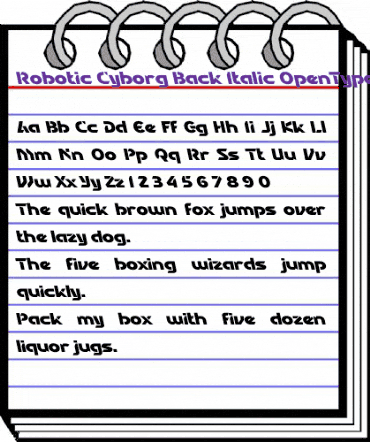 Robotic Cyborg Back Italic OpenType
Aa Bb Cc Dd Ee Ff Gg Hh Ii Jj Kk Ll
Mm Nn Oo Pp Qq Rr Ss Tt Uu Vv
Ww Xx Yy Zz 1 2 3 4 5 6 7 8 9 0
The quick brown fox jumps over
the lazy dog.
The five boxing wizards jump
quickly.
Pack my box with five dozen
liquor jugs.